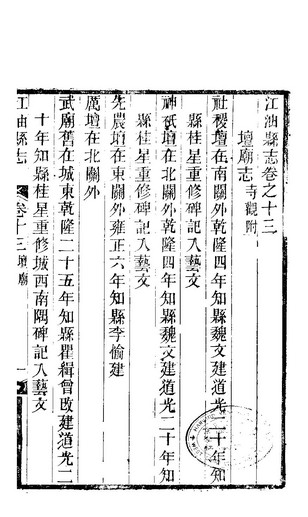 江油縣志卷之十三
壇廟志寺觀附
社稷壇在南關外乾隆四年知縣魏文建道光二十年知
縣桂星重修碑記入藝文
神祇壇在北關外乾隆四年知縣魏文建道光二十年知
縣桂星重修碑記入藝文
先農壇在東關外雍正六年知縣李愉建
厲壇在北關外
武廟舊在城東乾隆二十五年知縣瞿緝曾改建道光二
十年知縣桂星重修城西南隅碑記入藝文
江油縣志 卷十三 壇廟 一